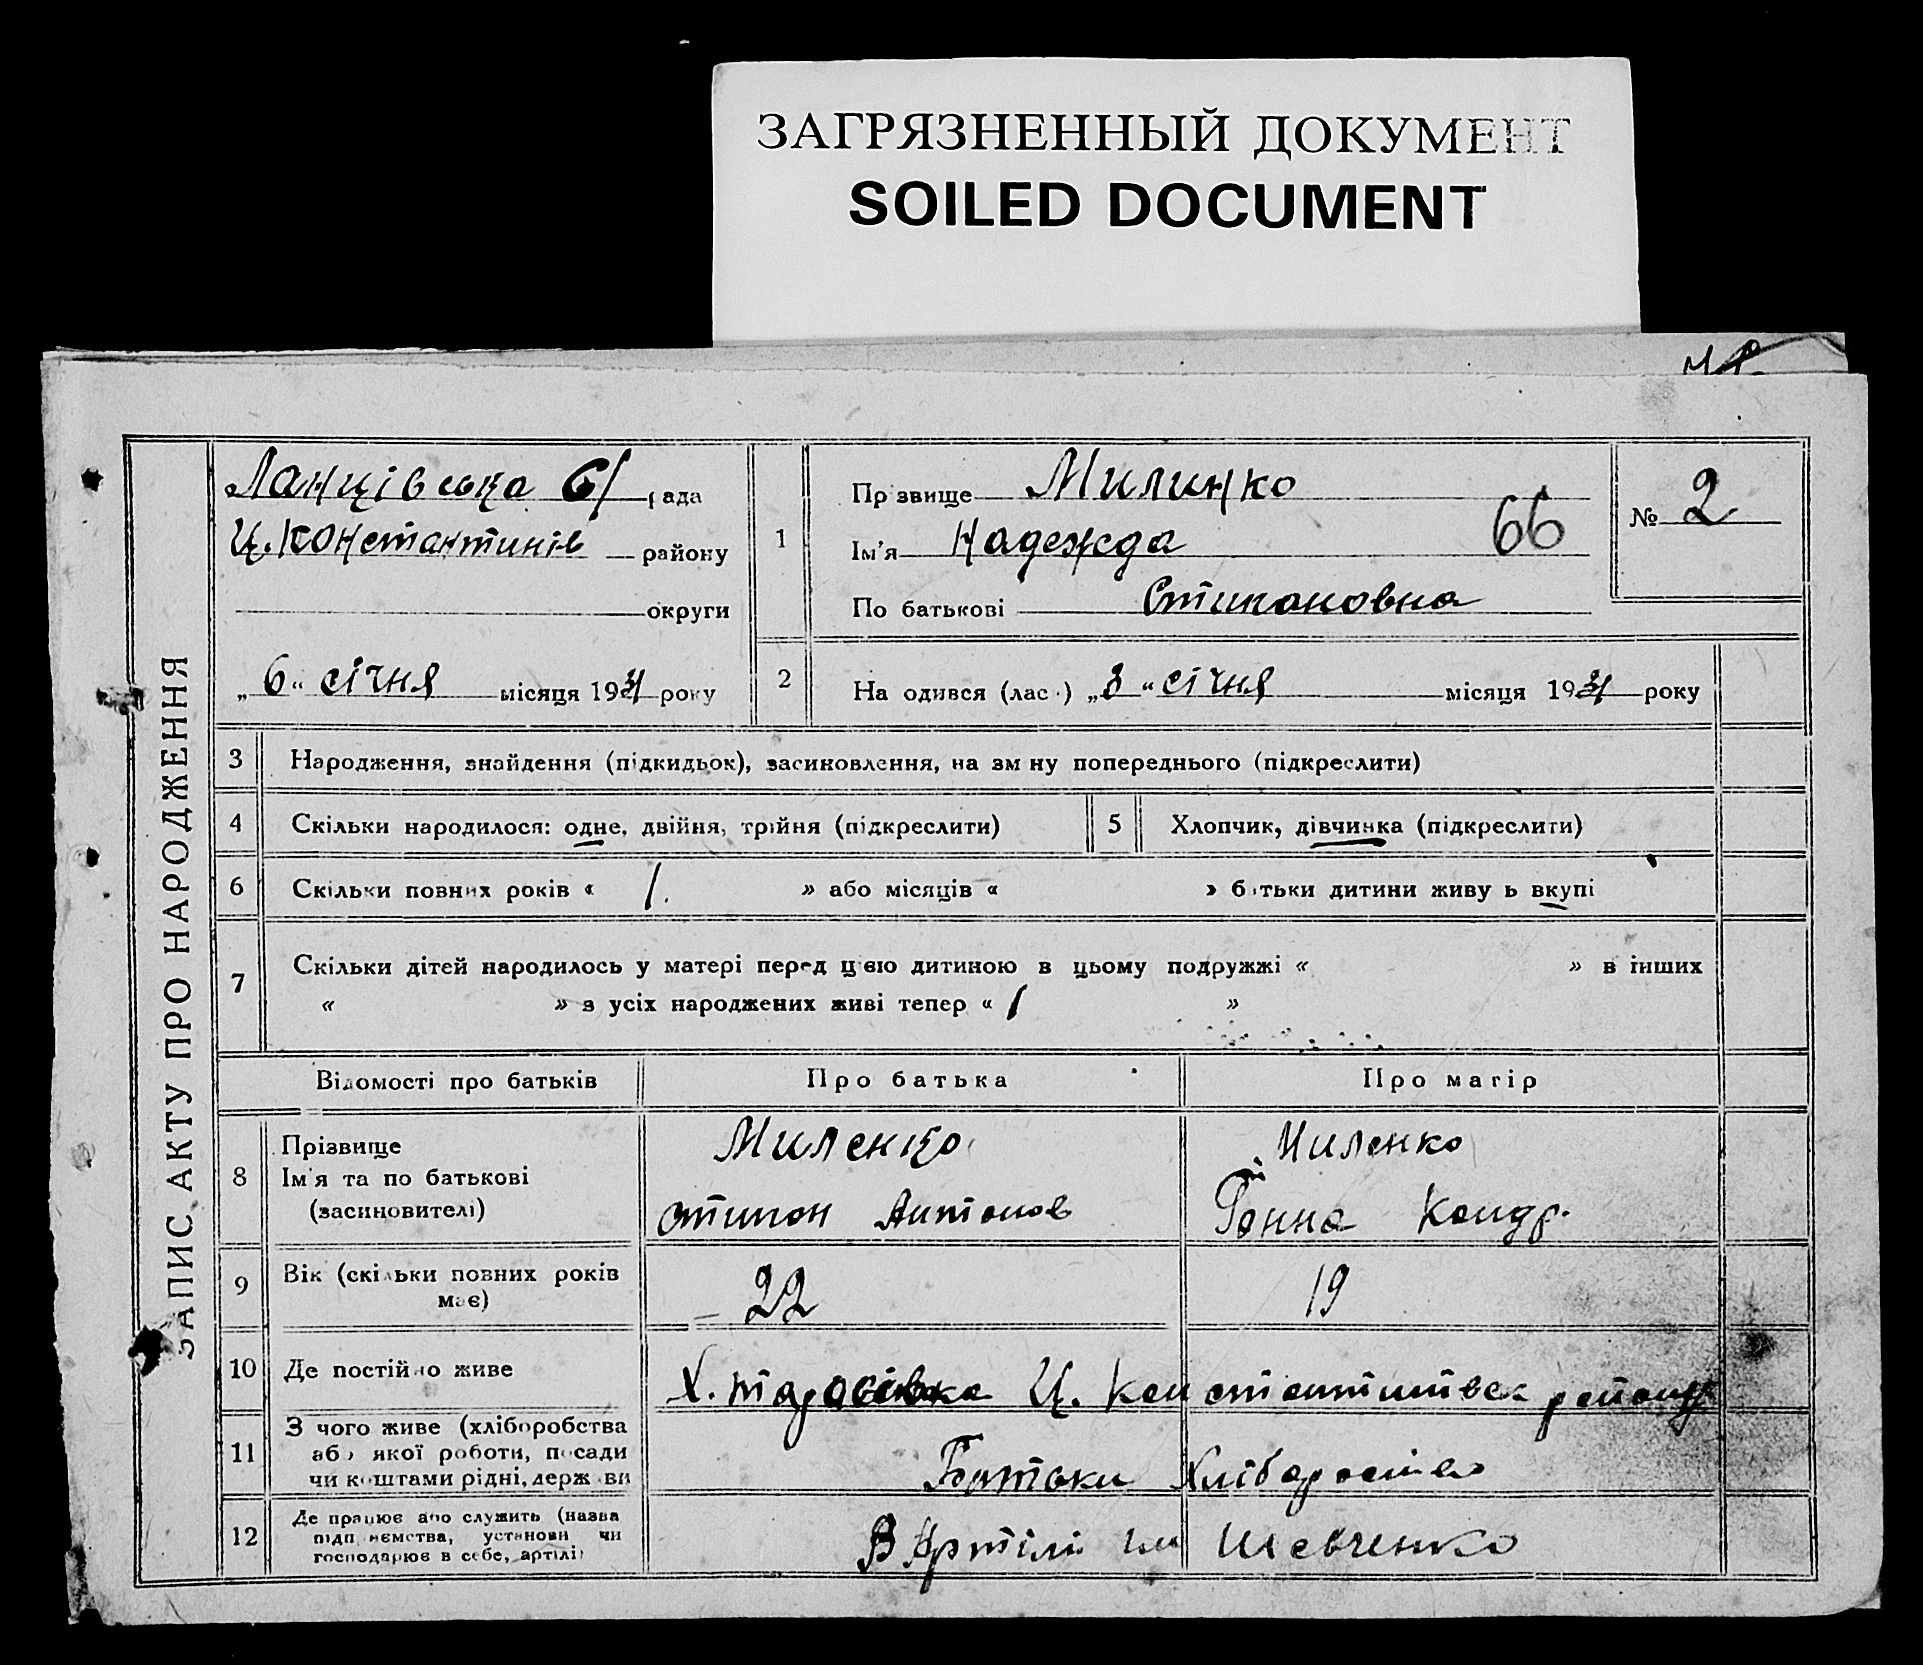 ЗАГРЯЗНЕННЫЙ ДОКУМЕНТ
SOILED DOCUMENT
ЗАПИС АКТУ ПРО НАРОДЖЕННЯ
Ланцівська С/ рада
Ц. Константинів району
округи
„ 6 “ січня місяця 1931 року
1
Прізвище Милинко
Ім'я Надежда 66
По батькові Стипановна
№ 2
2 На одився (лас ) „ 3 “ січня місяця 1931 року
3 Народження, знайдення (підкидьок), засиновлення, на зм ну попереднього (підкреслити)
4 Скільки народилося: одне, двійня, трійня (підкреслити)
5 Хлопчик, дівчинка (підкреслити)
6 Скільки повних років « 1. » або місяців « » б тьки дитини живу ь вкупі
7 Скільки дітей народилось у матері перед цією дитиною в цьому подружжі « » в інших
« » з усіх народжених живі тепер « 1 »
Відомості про батьків Про батька Про матір
8 Прізвище Миленко Миленко
Ім'я та по батькові
(засиновителі) Стипон Антонов Ганна Кондр.
9 Вік (скільки повних років
має) 22 19
10 Де постійно живе Х. Тарасівка Ц. Константинівск району
11 З чого живе (хліборобства
або якої роботи, посади
чи коштами рідні, держ ви Батьки Хліборобство
12 Де працює або служить (назва
підп иємства, установи чи
господарює в себе, артілі) В Артілі им Шевченко